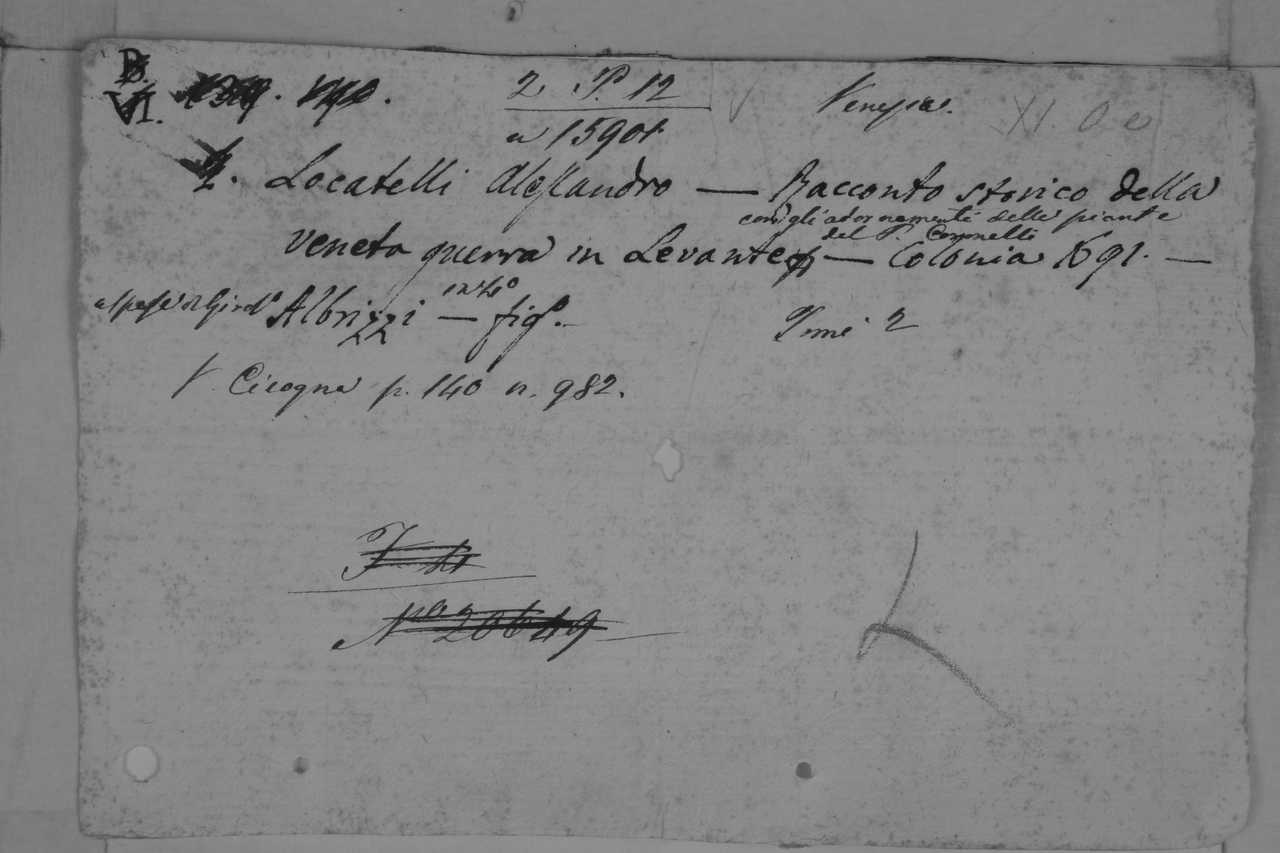 B.
VI.
2 P. 12
a 15901
Venezia.
XI O e
2. Locatelli Alessandro — Racconto storico della
con gli adornamenti delle piante
del P. Coronelli
veneta guerra in Levante — Colonia 1691. —
a spese di Gir.º Albrizzi — in 4º fig.º —
Tomi 2
V. Cicogna p. 140 n. 982.
Nº 20649